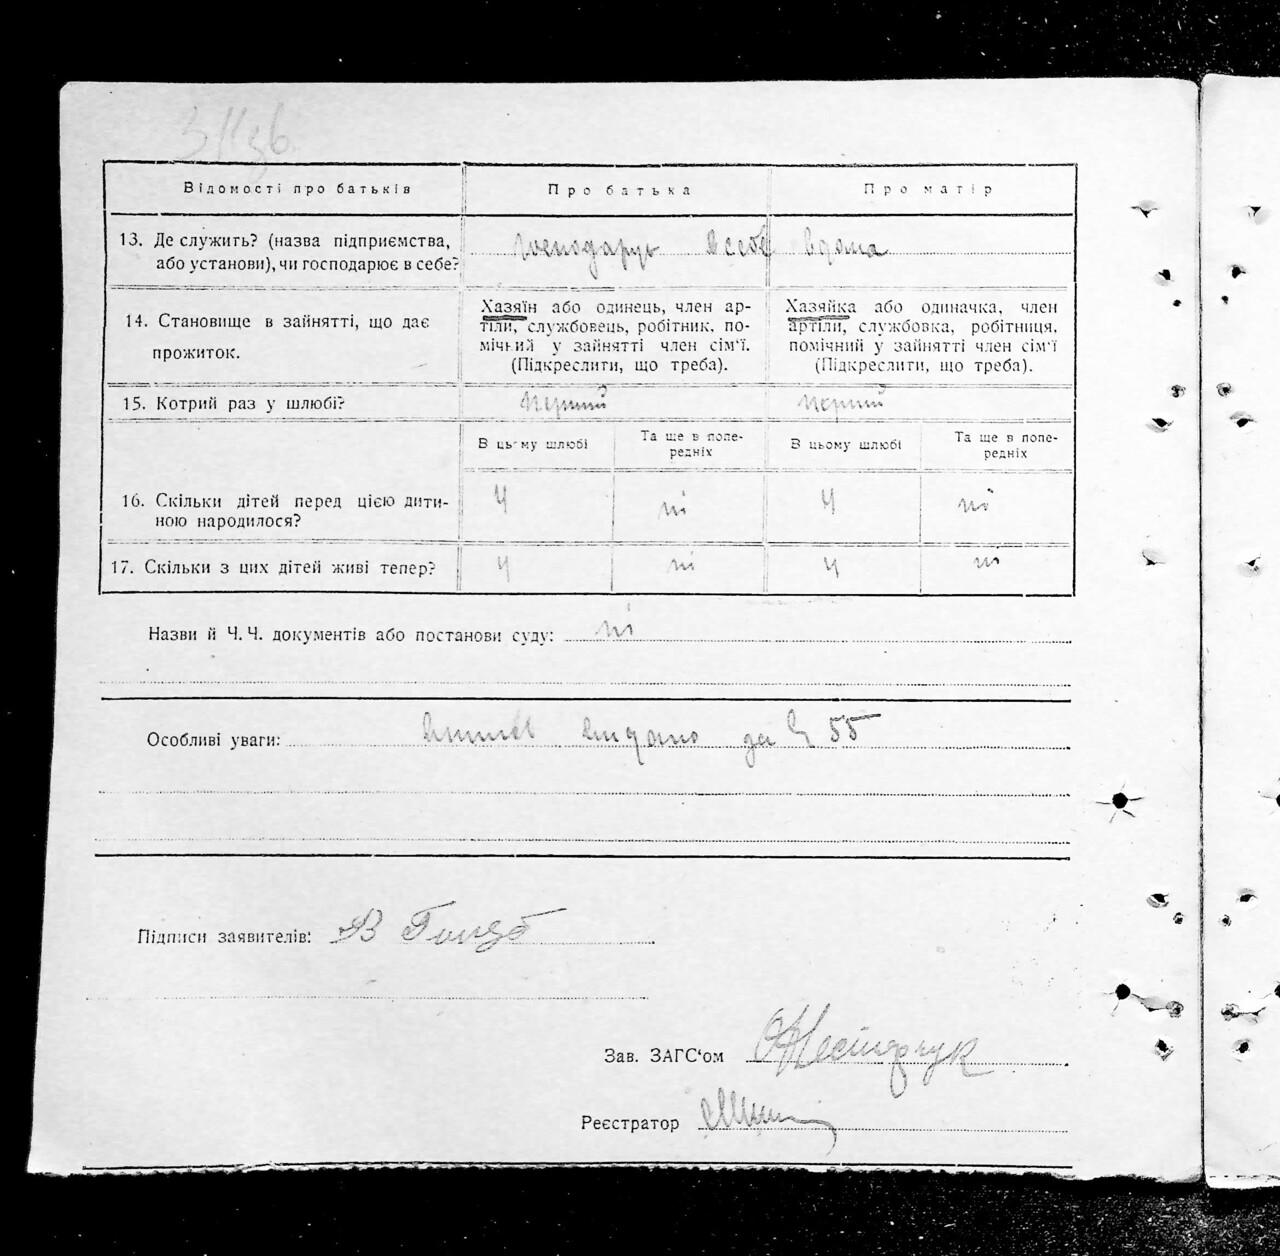 Відомості про батьків
Про батька
Про матір
13. Де служить? (назва підприємства,
або установи), чи господарює в себе?
господарує в себе вдома
14. Становище в зайнятті, що дає
прожиток.
Хазяїн або одинець, член ар-
тіли, службовець, робітник, по-
мічний у зайнятті член сім'ї.
(Підкреслити, що треба).
Хазяйка або одиначка, член
артіли, службовка, робітниця,
помічний у зайнятті член сім'ї
(Підкреслити, що треба).
15. Котрий раз у шлюбі?
перший
перший
В цьому шлюбі
Та ще в попе-
редніх
В цьому шлюбі
Та ще в попе-
редніх
16. Скільки дітей перед цією дити-
ною народилося?
4
ні
4
ні
17. Скільки з цих дітей живі тепер?
4
ні
4
ні
Назви й Ч.Ч. документів або постанови суду: ні
Особливі уваги: видано за 55
Підписи заявителів:
Зав. ЗАГС'ом
Реєстратор